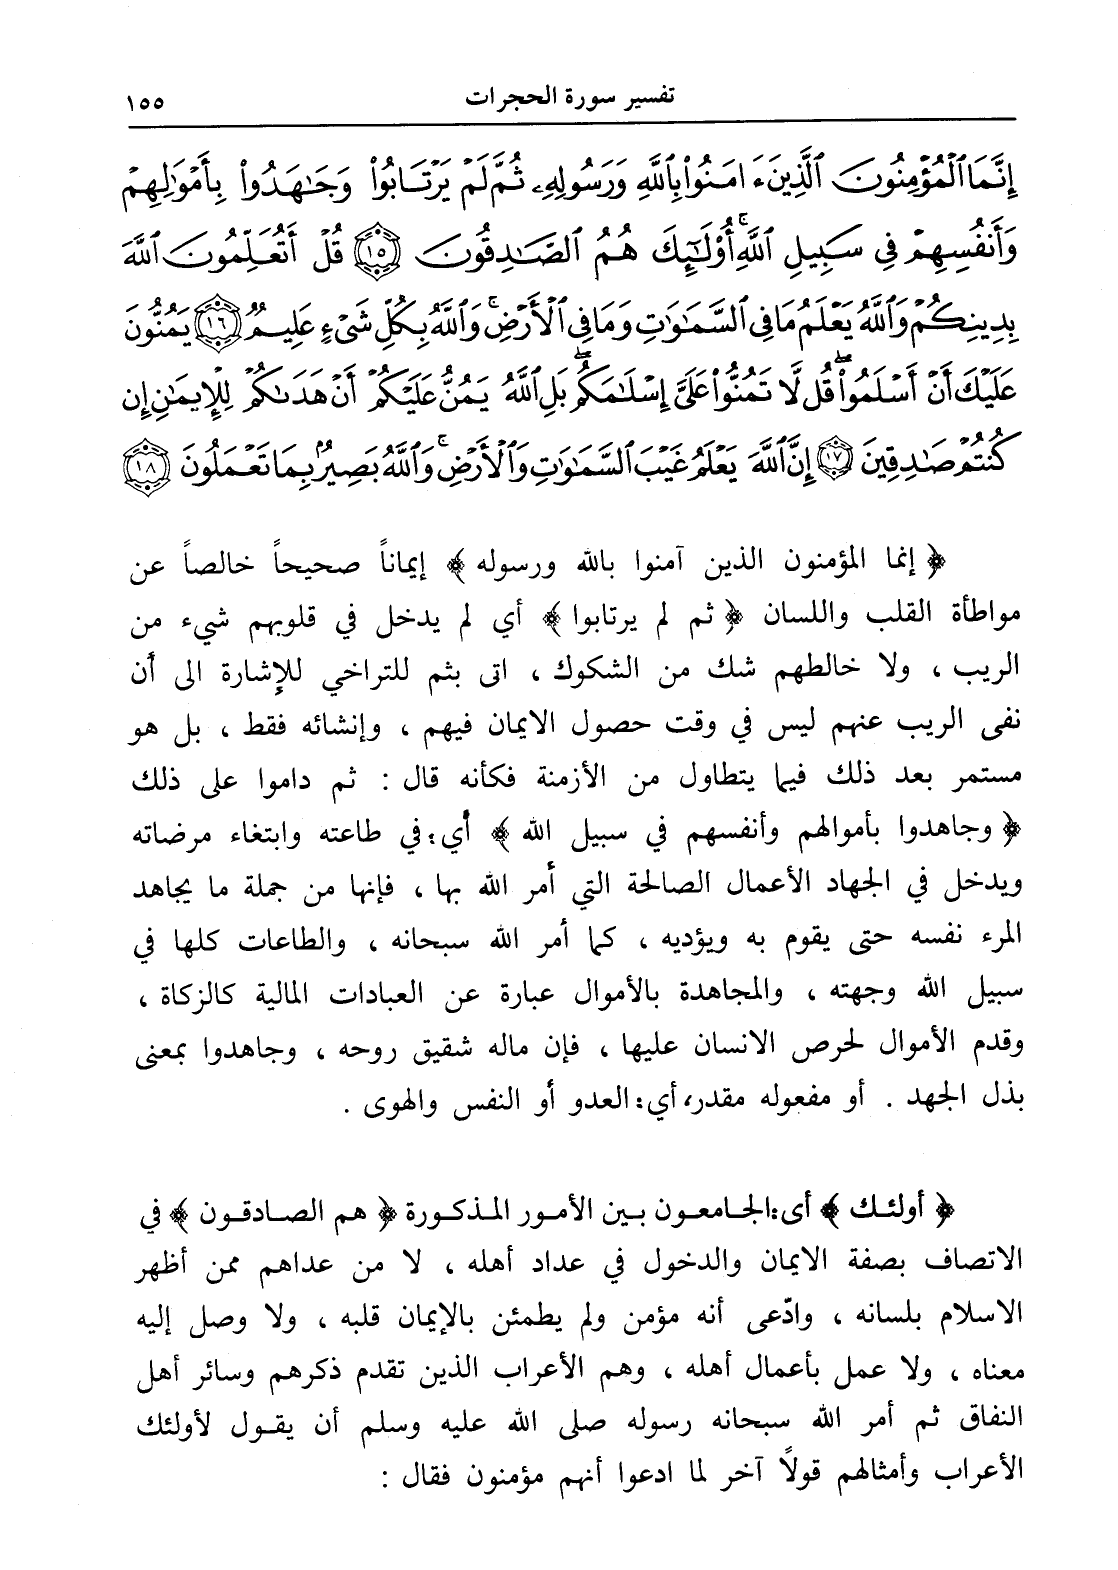 تفسير سورة الحجرات ١٥٥
إِنَّمَا ٱلْمُؤْمِنُونَ ٱلَّذِينَ ءَامَنُوا۟ بِٱللَّهِ وَرَسُولِهِۦ ثُمَّ لَمْ يَرْتَابُوا۟ وَجَـٰهَدُوا۟ بِأَمْوَٰلِهِمْ
وَأَنفُسِهِمْ فِى سَبِيلِ ٱللَّهِ ۚ أُو۟لَـٰٓئِكَ هُمُ ٱلصَّـٰدِقُونَ ﴿١٥﴾ قُلْ أَتُعَلِّمُونَ ٱللَّهَ
بِدِينِكُمْ وَٱللَّهُ يَعْلَمُ مَا فِى ٱلسَّمَـٰوَٰتِ وَمَا فِى ٱلْأَرْضِ ۚ وَٱللَّهُ بِكُلِّ شَىْءٍ عَلِيمٌ ﴿١٦﴾ يَمُنُّونَ
عَلَيْكَ أَنْ أَسْلَمُوا۟ ۖ قُل لَّا تَمُنُّوا۟ عَلَىَّ إِسْلَـٰمَكُم ۖ بَلِ ٱللَّهُ يَمُنُّ عَلَيْكُمْ أَنْ هَدَىٰكُمْ لِلْإِيمَـٰنِ إِن
كُنتُمْ صَـٰدِقِينَ ﴿١٧﴾ إِنَّ ٱللَّهَ يَعْلَمُ غَيْبَ ٱلسَّمَـٰوَٰتِ وَٱلْأَرْضِ ۚ وَٱللَّهُ بَصِيرٌۢ بِمَا تَعْمَلُونَ ﴿١٨﴾
﴿ إنما المؤمنون الذين آمنوا بالله ورسوله ﴾ إيماناً صحيحاً خالصاً عن
مواطأة القلب واللسان ﴿ ثم لم يرتابوا ﴾ أي لم يدخل في قلوبهم شيء من
الريب ، ولا خالطهم شك من الشكوك ، اتى بثم للتراخي للإشارة الى أن
نفى الريب عنهم ليس في وقت حصول الايمان فيهم ، وإنشائه فقط ، بل هو
مستمر بعد ذلك فيما يتطاول من الأزمنة فكأنه قال : ثم داموا على ذلك
﴿ وجاهدوا بأموالهم وأنفسهم في سبيل الله ﴾ أي: في طاعته وابتغاء مرضاته
ويدخل في الجهاد الأعمال الصالحة التي أمر الله بها ، فإنها من جملة ما يجاهد
المرء نفسه حتى يقوم به ويؤديه ، كما أمر الله سبحانه ، والطاعات كلها في
سبيل الله وجهته ، والمجاهدة بالأموال عبارة عن العبادات المالية كالزكاة ،
وقدم الأموال لحرص الانسان عليها ، فإن ماله شقيق روحه ، وجاهدوا بمعنى
بذل الجهد . أو مفعوله مقدر، أي: العدو أو النفس والهوى .
﴿ أولئك ﴾ أي: الجامعون بين الأمور المذكورة ﴿ هم الصادقون ﴾ في
الاتصاف بصفة الايمان والدخول في عداد أهله ، لا من عداهم ممن أظهر
الاسلام بلسانه ، وادّعى أنه مؤمن ولم يطمئن بالإيمان قلبه ، ولا وصل إليه
معناه ، ولا عمل بأعمال أهله ، وهم الأعراب الذين تقدم ذكرهم وسائر أهل
النفاق ثم أمر الله سبحانه رسوله صلى الله عليه وسلم أن يقول لأولئك
الأعراب وأمثالهم قولاً آخر لما ادعوا أنهم مؤمنون فقال :